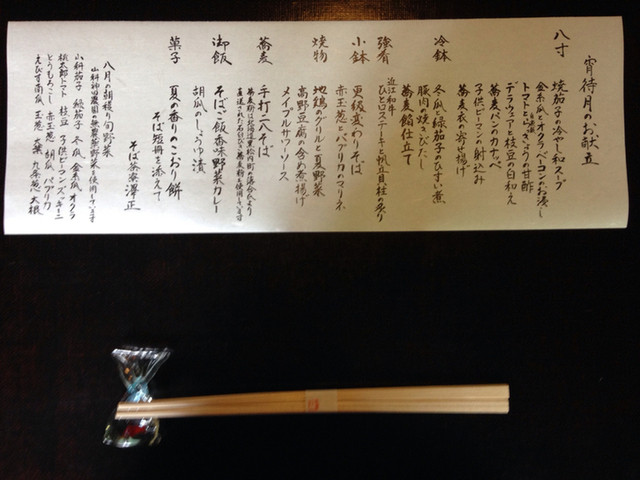 宵待月のお献立
八寸
焼茄子の冷やし和スープ
金糸瓜とオクラ、ベーコンのお浸し
トマトと山
の甘酢
デラウェアと枝豆の白和え
蕎麦パンのカナッペ
子供ピーマンの射込み
蕎麦衣の寄せ揚げ
冷鉢
冬瓜と緑茄子のひすい煮
豚肉の焼きびたし
蕎麦餡仕立て
強肴
近江和牛
ひと口ステーキと帆立貝柱の炙り
小鉢
更級変わりそば
赤玉葱とパプリカのマリネ
焼物
地鶏のグリルと夏野菜
高野豆腐の含め煮揚げ
メイプルサワーソース
蕎麦
手打二八そば
御飯
そばご飯香味野菜カレー
胡瓜のしょうゆ漬
菓子
夏の香りのこおり餅
そば短冊を添えて
そば茶寮澤正
八月の朝穫り旬野菜
山科神田農園の無農薬野菜を使用しています
山科茄子 緑茄子 冬瓜 金糸瓜 オクラ
桃太郎トマト 枝豆 子供ピーマン ズッキーニ
とうもろこし 赤玉葱 胡瓜 パプリカ
えびす南瓜 玉葱 大葉 九条葱 大根